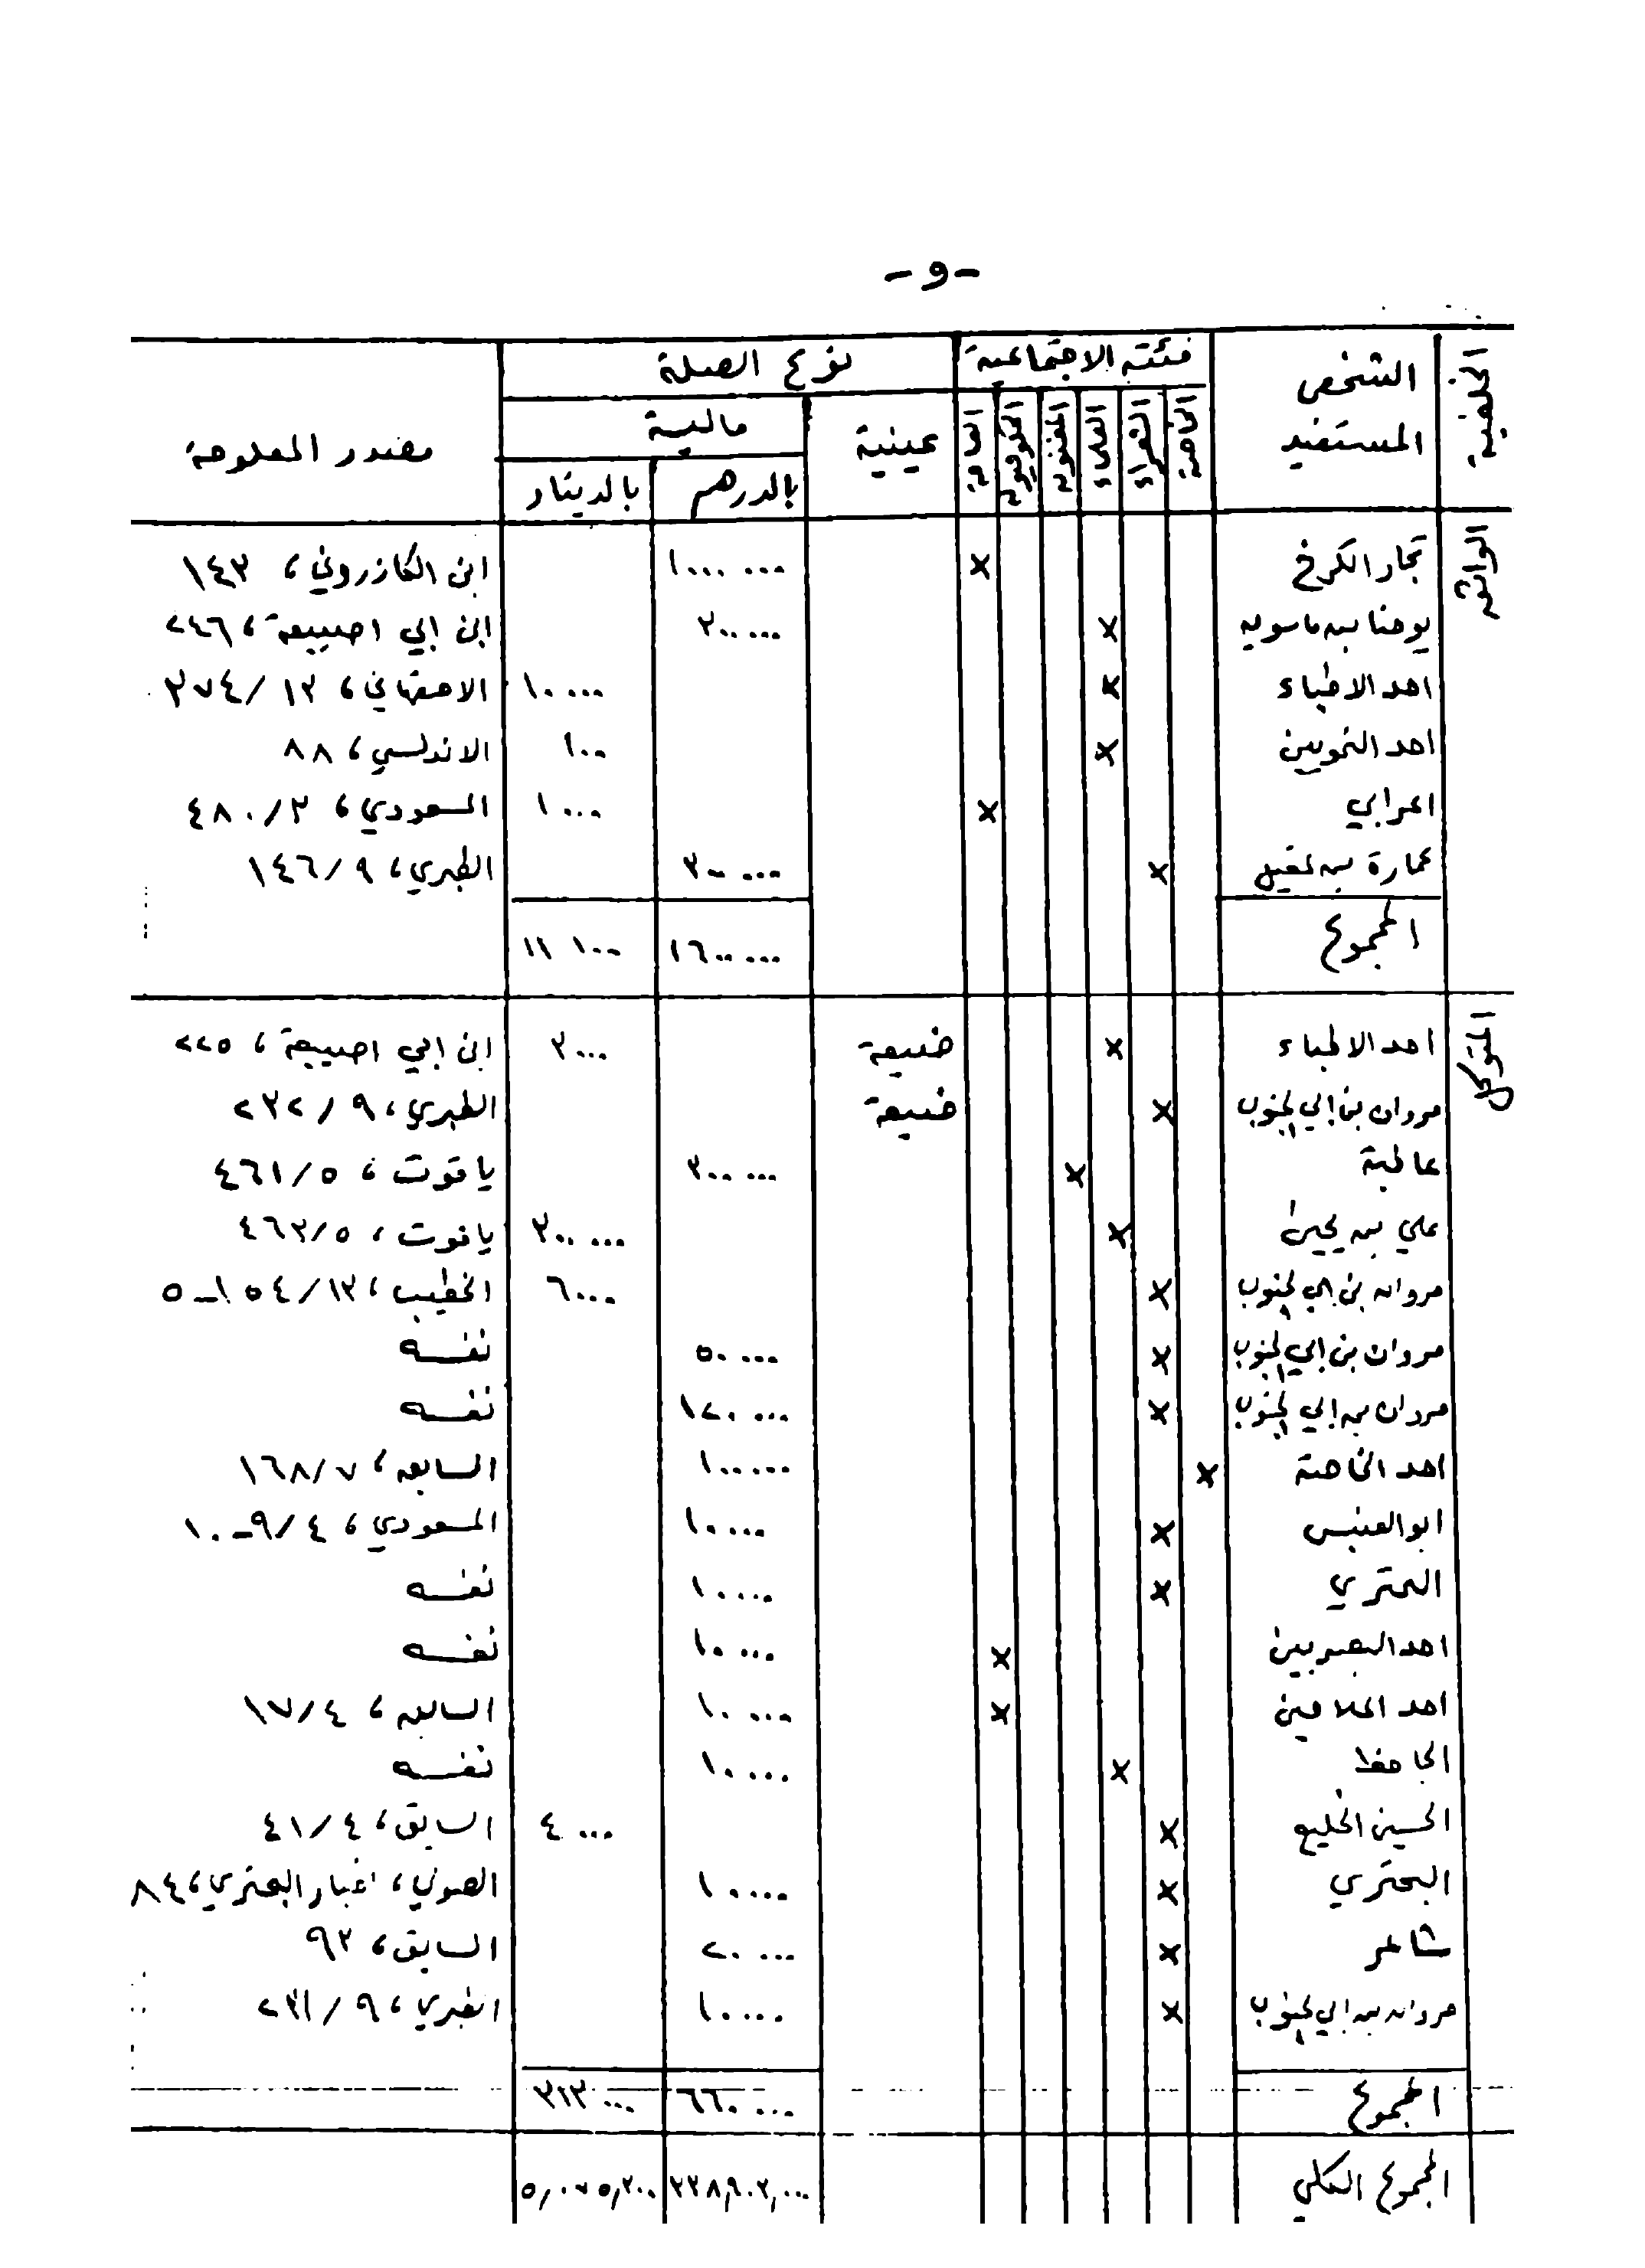 - و -
الخليفة | الشخص المستفيد | فئته الاجتماعية | نوع الصلة | مصدر المعلومة
الخاصة | الشعراء | العلماء | المغنون | المكرمون | العامة | عينية | مالية
بالدرهم | بالدينار
الواثق
تجار الكرخ | × | ١٠٠٠ ٠٠٠ | ابن الكازروني، ١٤٣
يوحنا بن ماسويه | × | ٣٠٠ ٠٠٠ | ابن ابي اصيبعة، ٢٤٦
احد الاطباء | × | ١٠ ٠٠٠ | الاصفهاني، ١٣/ ٢٧٤
احد النحويين | × | ١٠٠ | الاندلسي، ٨٨
اعرابي | × | ١ ٠٠٠ | المسعودي، ٣/ ٤٨٠
عمارة بن عقيل | × | ٣٠٠ ٠٠٠ | الطبري، ٩/ ١٤٦
المجموع | ١٦٠٠ ٠٠٠ | ١١ ١٠٠
المتوكل
احد الاطباء | × | ضيعة | ٣ ٠٠٠ | ابن ابي اصيبعة، ٢٢٥
مروان بن ابي الجنوب | × | ضيعة | الطبري، ٩/ ٢٣٢
× | ٣٠٠ ٠٠٠ | ياقوت، ٥/ ٤٦١
علي بن يحيى | × | ٣٠٠ ٠٠٠ | ياقوت، ٥/ ٤٦٣
مروان بن ابي الجنوب | × | ٦ ٠٠٠ | الخطيب، ١٣/ ١٥٤-٥
مروان بن ابي الجنوب | × | ٥٠ ٠٠٠ | نفسه
مروان بن ابي الجنوب | × | ١٢٠ ٠٠٠ | نفسه
احد الخاصة | × | ١٠٠ ٠٠٠ | السابق، ٧/ ١٦٨
ابو العنبس | × | ١٠ ٠٠٠ | المسعودي، ٤/ ٩-١٠
البحتري | × | ١٠ ٠٠٠ | نفسه
احد البصريين | × | ١٠ ٠٠٠ | نفسه
احد الملاحين | × | ١٠ ٠٠٠ | السابق، ٤/ ١٧
الجاحظ | × | ١٠ ٠٠٠ | نفسه
الحسين الخليع | × | ٤ ٠٠٠ | السابق، ٤/ ٤١
البحتري | × | ١٠ ٠٠٠ | الصولي، اخبار البحتري، ٨٤
شاعر | × | ٢٠ ٠٠٠ | السابق، ٩٣
مروان بن ابي الجنوب | × | ١٠ ٠٠٠ | الطبري، ٩/ ٢٣١
المجموع | ٦٦٠ ٠٠٠ | ٣١٣ ٠٠٠
المجموع الكلي | ٠٠٠,٩٠٣,٣٣٨ | ٣٠٠,٠٧٥,٥